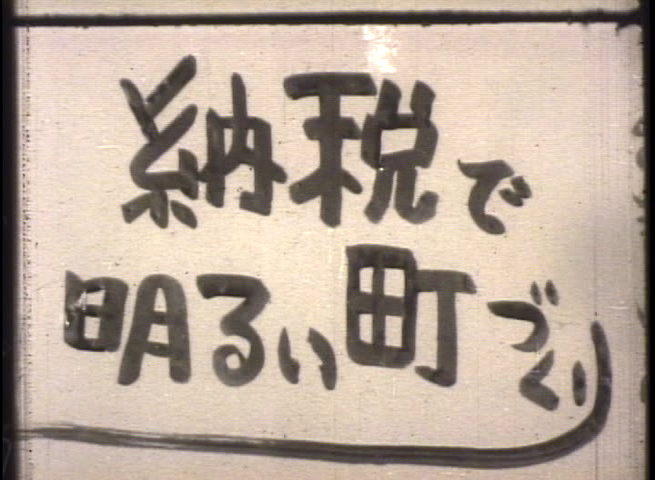 納税で
明るい町づくり